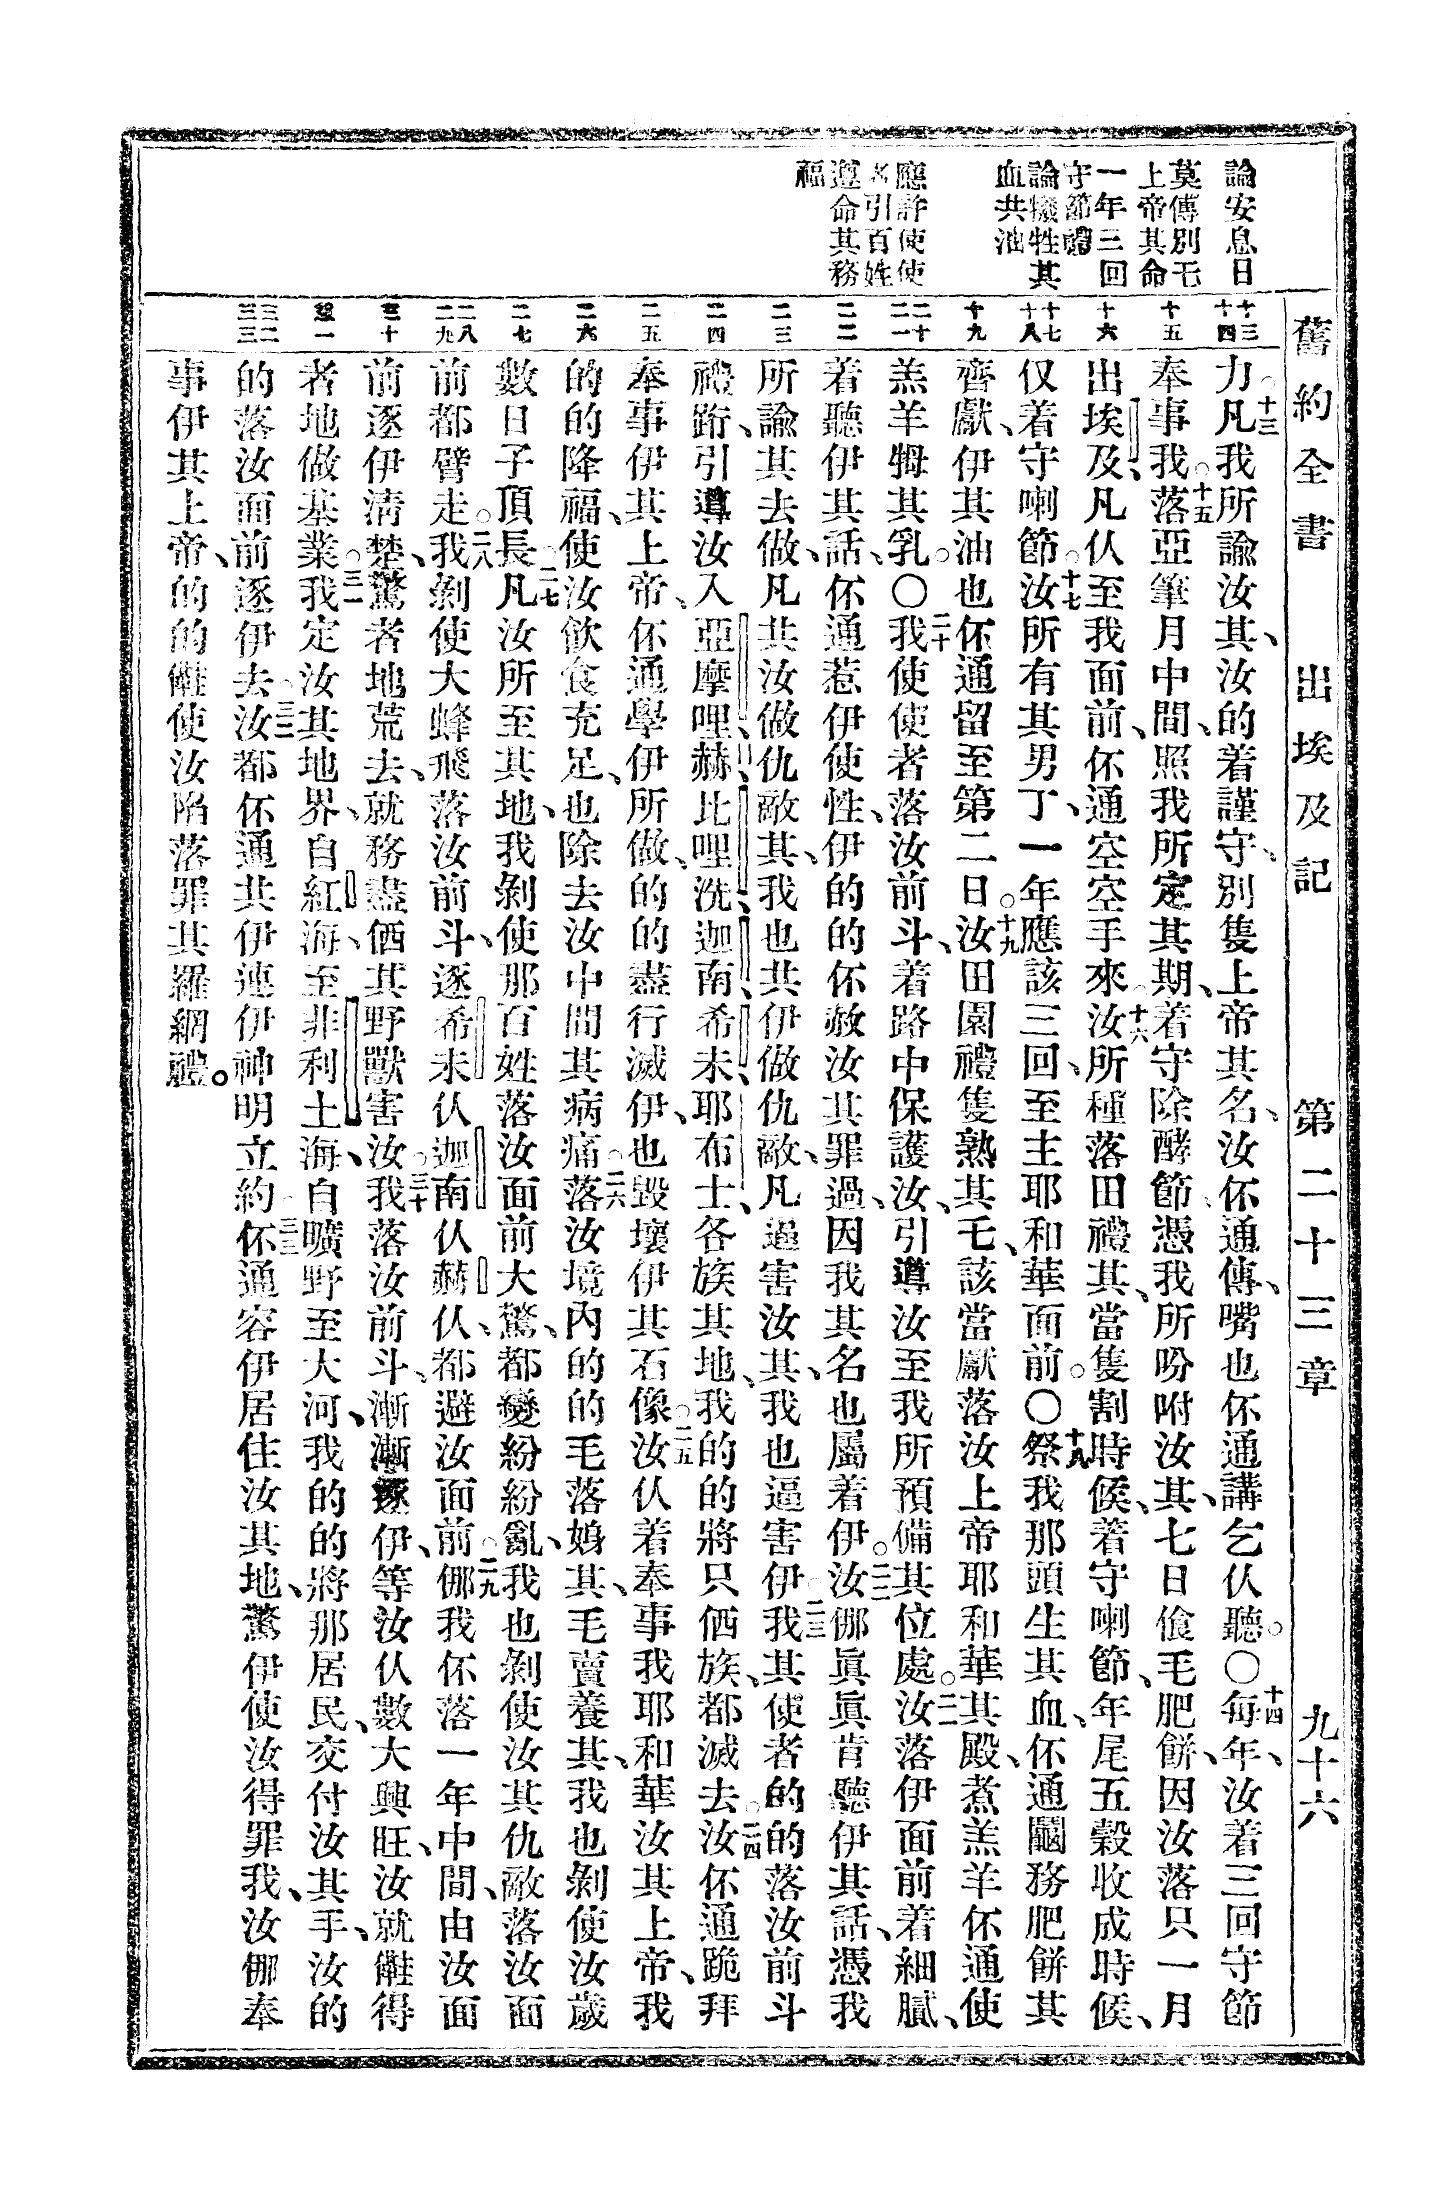 舊約全書　出埃及記　第二十三章　九十六
論安息日
莫傅別乇
上帝其命
一年三回
守節禮
論犧牲其
血共油
應許使使
者引百姓
遵命其務
福
十三
十四
十五
十六
十七
十八
十九
二十
二一
二二
二三
二四
二五
二六
二七
二八
二九
三十
三一
三二
三三
力。十三凡我所諭汝其、汝的着謹守、別隻上帝其名、汝伓通傳、嘴也伓通講乞仈聽。〇十四每年、汝着三回守節
奉事我。十五落亞筆月中間、照我所定其期、着守除酵節、憑我所吩咐汝其、七日食毛肥餅、因汝落只一月
出埃及、凡仈至我面前、伓通空空手來。十六汝所種落田禮其、當隻割時候、着守喇節、年尾五穀收成時候、
仅着守喇節。十七汝所有其男丁、一年應該三回、至主耶和華面前。〇十八祭我那頭生其血、伓通䦰務肥餅其
齊獻、伊其油也伓通留至第二日。十九汝田園禮隻熟其乇、該當獻落汝上帝耶和華其殿、煮羔羊伓通使
羔羊㹀其乳。〇二十我使使者落汝前斗、着路中保護汝、引導汝至我所預備其位處。二一汝落伊面前着細膩、
着聽伊其話、伓通惹伊使性、伊的的伓赦汝其罪過、因我其名也屬着伊。二二汝倻眞眞肯聽伊其話、憑我
所諭其去做、凡共汝做仇敵其、我也共伊做仇敵、凡逼害汝其、我也逼害伊。二三我其使者的的落汝前斗
禮跲、引導汝入亞摩哩、赫、比哩洗、迦南、希未、耶布士、各族其地、我的的將只伵族、都滅去。二四汝伓通跪拜
奉事伊其上帝、伓通學伊所做、的的盡行滅伊、也毀壞伊其石像。二五汝仈着奉事我耶和華汝其上帝、我
的的降福、使汝飲食充足、也除去汝中間其病痛。二六落汝境內的的毛落㛇其、毛賣養其、我也剝使汝歲
數日子頂長。二七凡汝所至其地、我剝使那百姓落汝面前大驚、都變紛紛亂、我也剝使汝其仇敵落汝面
前都臂走。二八我剝使大蜂飛落汝前斗、逐希未仈迦南仈赫仈、都避汝面前。二九倻我伓落一年中間、由汝面
前逐伊淸楚、驚者地荒去、就務盡伵其野獸害汝。三十我落汝前斗、漸漸逐伊、等汝仈數大興旺、汝就𠕇得
者地做基業。三一我定汝其地界、自紅海、至非利士海、自曠野至大河、我的的將那居民、交付汝其手、汝的
的落汝面前逐伊去。三二汝都伓通共伊連伊神明立約。三三伓通容伊居住汝其地、驚伊使汝得罪我、汝倻奉
事伊其上帝、的的𠕇使汝陷落罪其羅網禮。